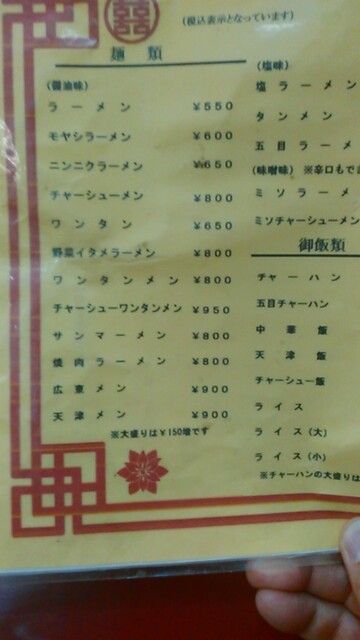 囍
(税込表示となっています)
麺類
(醤油味)
ラーメン ¥550
モヤシラーメン ¥600
ニンニクラーメン ¥650
チャーシューメン ¥800
ワンタン ¥650
野菜イタメラーメン ¥800
ワンタンメン ¥800
チャーシューワンタンメン ¥950
サンマーメン ¥800
焼肉ラーメン ¥800
広東メン ¥900
天津メン ¥900
※大盛りは¥150増です
(塩味)
塩ラーメン
タンメン
五目ラーメ
(味噌味) ※辛口もでき
ミソラーメ
ミソチャーシューメン
御飯類
チャーハン
五目チャーハン
中華飯
天津飯
チャーシュー飯
ライス
ライス(大)
ライス(小)
※チャーハンの大盛りは